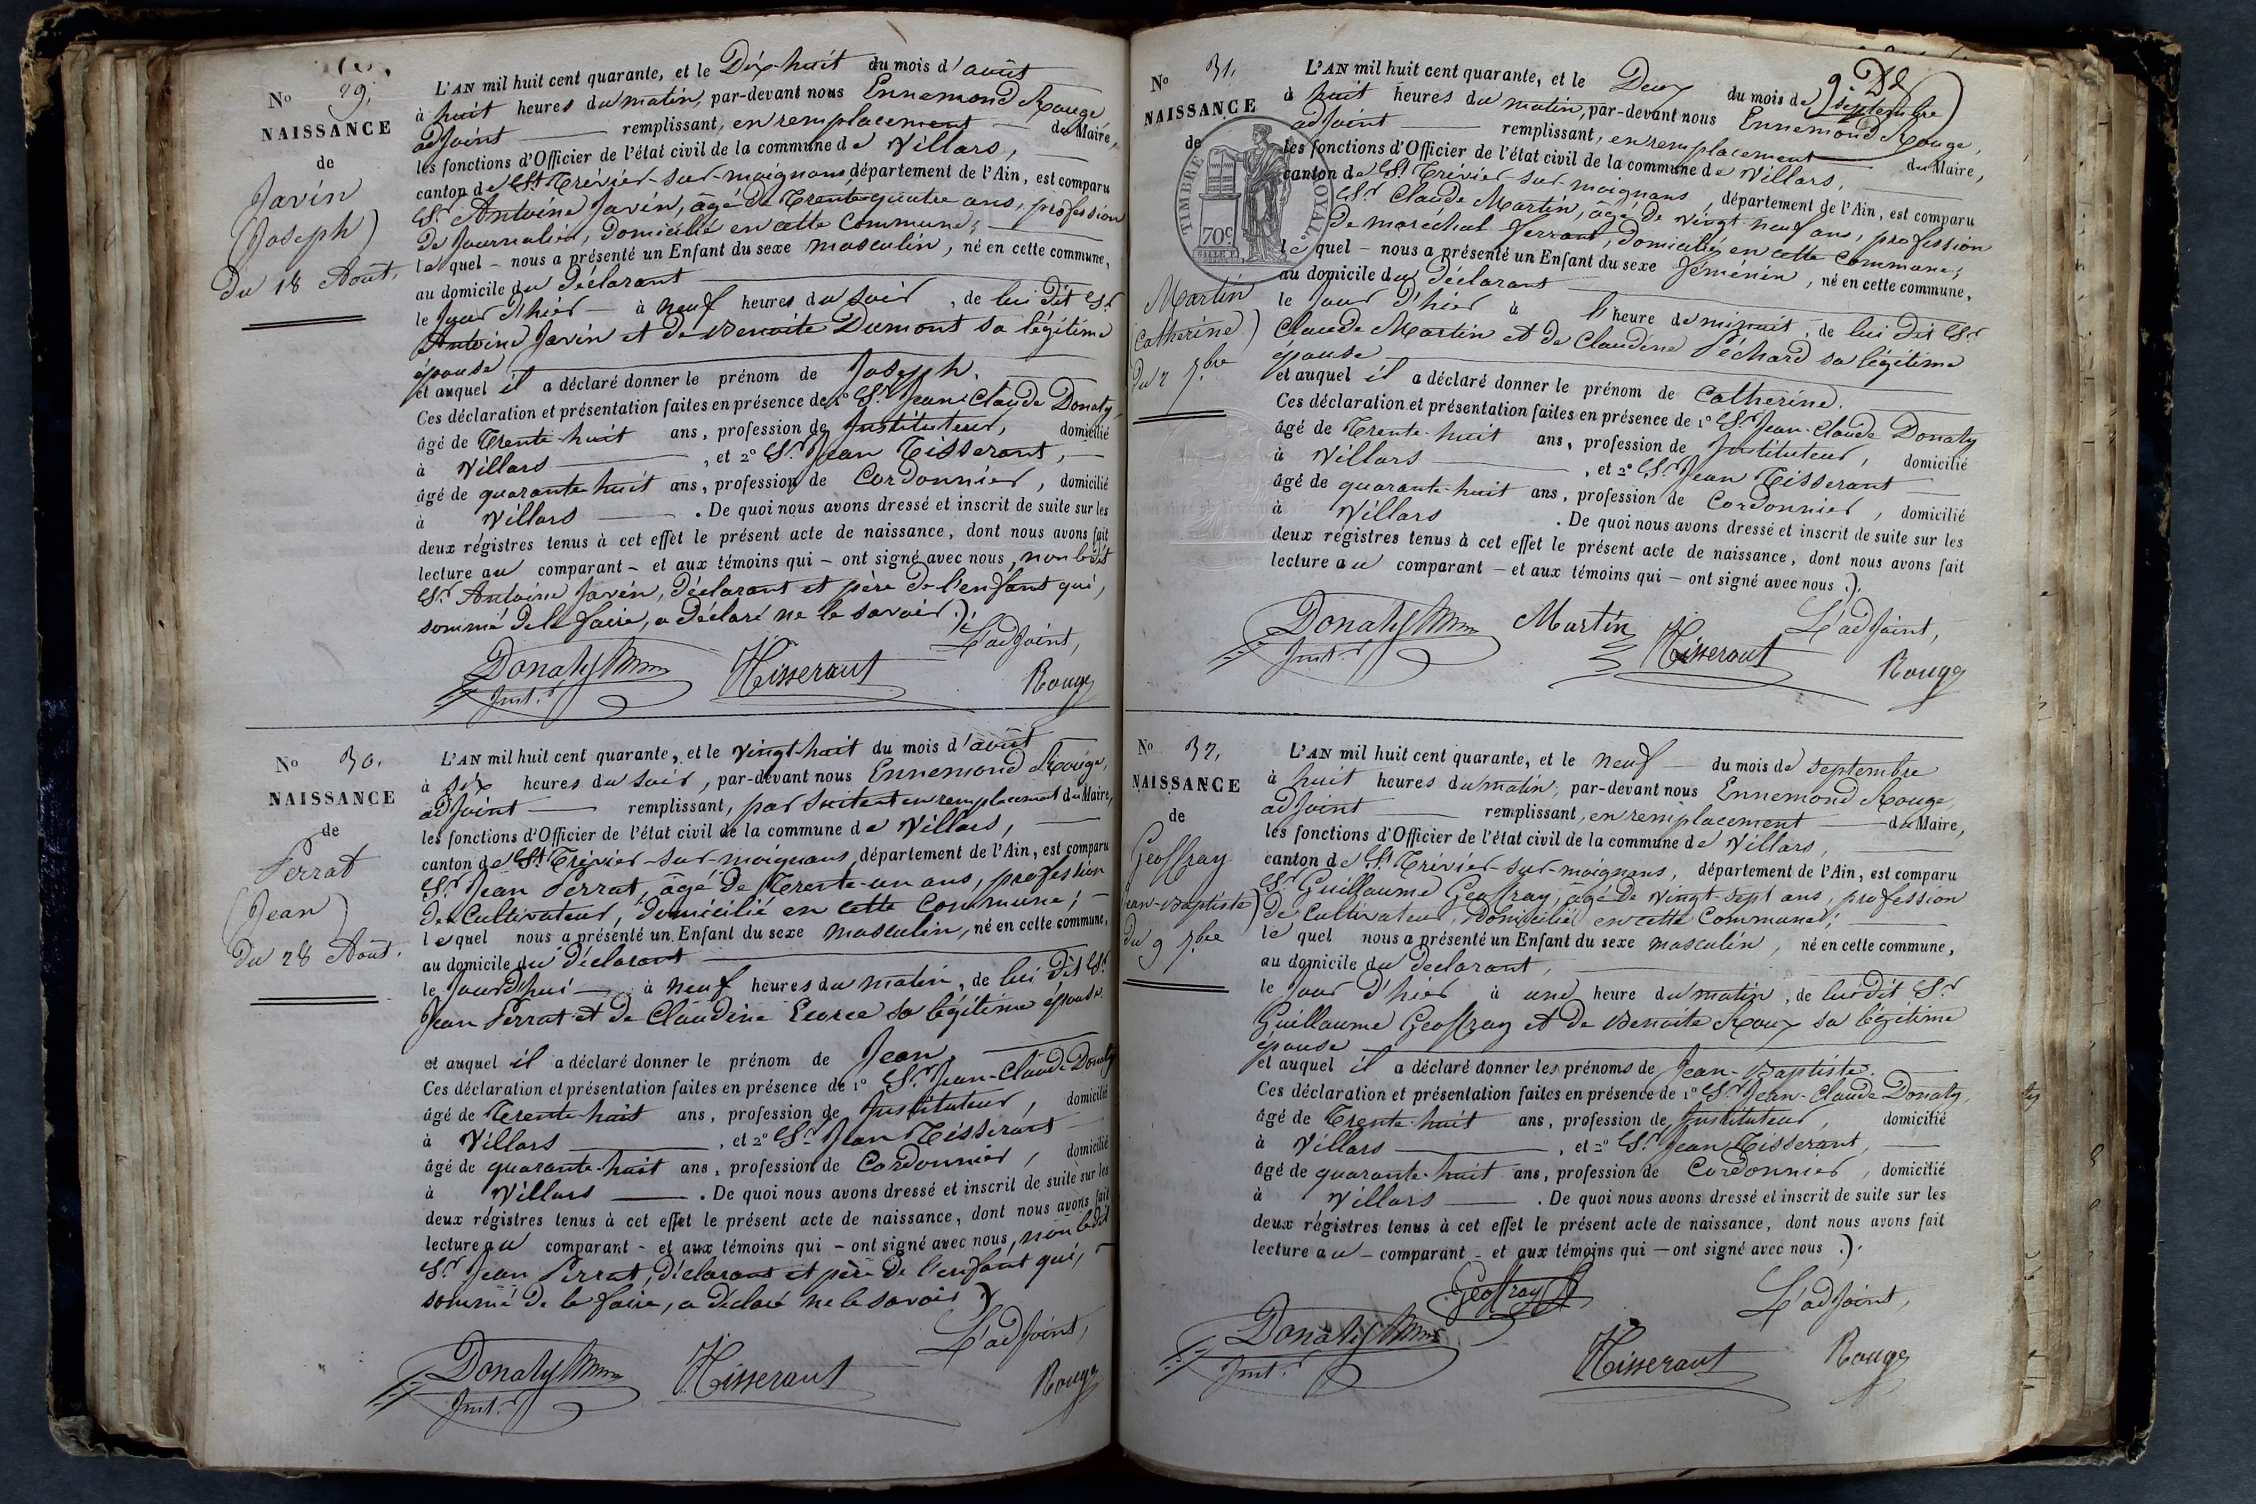 No 29.
NAISSANCE
de
Javin
(Joseph)
Du 18 Août.
L'AN mil huit cent quarante, et le Dix-huit du mois d'août
à huit heures du matin, par-devant nous Ennemond Rouge
adjoint remplissant, en remplacement du Maire,
les fonctions d'Officier de l'état civil de la commune de Villars,
canton de St Trévier-sur-moignans département de l'Ain, est comparu
Sr Antoine Javin, âgé de Trente-quatre ans, profession
de Journalier, domicilié en cette Commune;
lequel - nous a présenté un Enfant du sexe masculin, né en cette commune,
au domicile du déclarant
le jour d'hier - à neuf heures du soir, de lui dit Sr
Antoine Javin et de Benoite Dumont sa légitime
épouse
et auquel il a déclaré donner le prénom de Joseph.
Ces déclaration et présentation faites en présence de 1º Sr Jean-Claude Donaty,
âgé de Trente-huit ans, profession de Instituteur, domicilié
à Villars, et 2º Sr Jean Tisserant,
âgé de quarante-huit ans, profession de Cordonnier, domicilié
à Villars. De quoi nous avons dressé et inscrit de suite sur les
deux régistres tenus à cet effet le présent acte de naissance, dont nous avons fait
lecture au comparant - et aux témoins qui - ont signé avec nous, non ledit
Sr Antoine Javin, déclarant et père de l'enfant qui,
sommé de le faire, a déclaré ne le savoir).
L'adjoint,
Donaty Inst.r Tisserant Rouge
No 30.
NAISSANCE
de
Perrat
(Jean)
Du 28 Août.
L'AN mil huit cent quarante, et le vingt-huit du mois d'août
à six heures du soir, par-devant nous Ennemond Rouge,
adjoint remplissant, par suitent en remplacement du Maire,
les fonctions d'Officier de l'état civil de la commune de Villars,
canton de St Trévier-sur-moignans, département de l'Ain, est comparu
Sr Jean Perrat, âgé de Trente-un ans, profession
de Cultivateur, domicilié en cette Commune;
lequel nous a présenté un Enfant du sexe masculin, né en cette commune,
au domicile du déclarant
le jourd'hui à neuf heures du matin, de lui dit Sr
Jean Perrat et de Claudine Ecorce sa légitime épouse
et auquel il a déclaré donner le prénom de Jean.
Ces déclaration et présentation faites en présence de 1º Sr Jean-Claude Donaty
âgé de Trente-huit ans, profession de Instituteur, domicilié
à Villars, et 2º Sr Jean Tisserant
âgé de quarante-huit ans, profession de Cordonnier, domicilié
à Villars. De quoi nous avons dressé et inscrit de suite sur les
deux régistres tenus à cet effet le présent acte de naissance, dont nous avons fait
lecture au comparant - et aux témoins qui - ont signé avec nous, non ledit
Sr Jean Perrat, déclarant et père de l'enfant qui,
sommé de le faire, a déclaré ne le savoir)
L'adjoint,
Donaty Inst.r Tisserant Rouge
No 31.
NAISSANCE
de
TIMBRE ROYAL
70c
Martin
(Catherine)
Du 2 7bre
L'AN mil huit cent quarante, et le Deux du mois de septembre
à huit heures du matin, par-devant nous Ennemond Rouge,
adjoint remplissant, en remplacement du Maire,
les fonctions d'Officier de l'état civil de la commune de Villars,
canton de St Trévier-sur-moignans, département de l'Ain, est comparu
Sr Claude Martin, âgé de vingt-neuf ans, profession
de maréchal-ferrant, domicilié en cette Commune;
lequel - nous a présenté un Enfant du sexe féminin, né en cette commune,
au domicile du déclarant
le jour d'hier à l'heure de minuit, de lui dit Sr
Claude Martin et de Claudine Péchard sa légitime
épouse
et auquel il a déclaré donner le prénom de Catherine.
Ces déclaration et présentation faites en présence de 1º Sr Jean-Claude Donaty
âgé de Trente-huit ans, profession de Instituteur, domicilié
à Villars, et 2º Sr Jean Tisserant
âgé de quarante-huit ans, profession de Cordonnier, domicilié
à Villars. De quoi nous avons dressé et inscrit de suite sur les
deux régistres tenus à cet effet le présent acte de naissance, dont nous avons fait
lecture au comparant - et aux témoins qui - ont signé avec nous).
L'adjoint,
Donaty Inst.r Martin Tisserant Rouge
No 32.
NAISSANCE
de
Geoffray
Jean-Baptiste)
Du 9 7bre
L'AN mil huit cent quarante, et le neuf du mois de septembre
à huit heures du matin, par-devant nous Ennemond Rouge,
adjoint remplissant, en remplacement du Maire,
les fonctions d'Officier de l'état civil de la commune de Villars,
canton de St Trévier-sur-moignans, département de l'Ain, est comparu
Sr Guillaume Geoffray, âgé de vingt-sept ans, profession
de Cultivateur, domicilié en cette Commune;
lequel nous a présenté un Enfant du sexe masculin, né en cette commune,
au domicile du déclarant,
le jour d'hier à une heure du matin, de lui dit Sr
Guillaume Geoffray et de Benoite Roux sa légitime
épouse
et auquel il a déclaré donner les prénoms de Jean-Baptiste.
Ces déclaration et présentation faites en présence de 1º Sr Jean-Claude Donaty,
âgé de Trente-huit ans, profession de Instituteur, domicilié
à Villars, et 2º Sr Jean Tisserant,
âgé de quarante-huit ans, profession de Cordonnier, domicilié
à Villars. De quoi nous avons dressé et inscrit de suite sur les
deux régistres tenus à cet effet le présent acte de naissance, dont nous avons fait
lecture au - comparant - et aux témoins qui - ont signé avec nous).
Geoffray L'adjoint,
Donaty Inst.r Tisserant Rouge